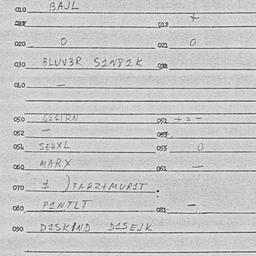 010 BAJL
012 +
020 0 021 0
030 BLUV3R S1N81K 031
040 —
050 G81IRN 051 + = -
052 — 053
054 SE4XL 055 0
060 MARX 061 —
070 1 ) FARZ+MUR1T
080 P1NTLT 081 —
090 D1SK1ND D1SEJK